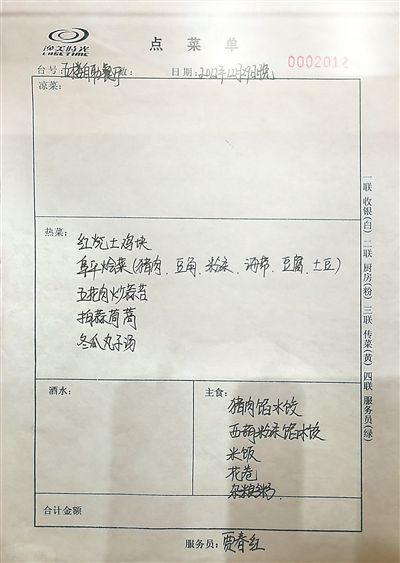 渔美时光
LUSETIME
点菜单
0002012
台号:五楼自助餐厅 日期:2012年12月29日晚
凉菜:
热菜:
红烧土鸡块
阜平烩菜(猪肉、豆角、粉条、海带、豆腐、土豆)
五花肉炒蒜苔
拍蒜茼蒿
冬瓜丸子汤
酒水:
主食:
猪肉馅水饺
西葫粉条馅水饺
米饭
花卷
杂粮粥
合计金额
服务员:贾春红
一联 收银(白) 二联 厨房(粉) 三联 传菜(黄) 四联 服务员(绿)